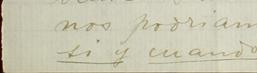 nos podrian
si y cuando